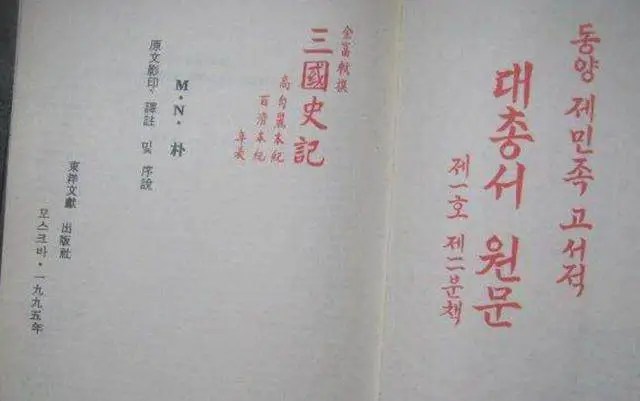 동양 제민족 고서적
대총서 원문
제一호 제二분책
金富軾撰
三國史記
高句麗本紀
百濟本紀
年表
M·N·朴
原文影印、譯註 및 序說
東洋文獻 出版社
모스크바·一九九五年